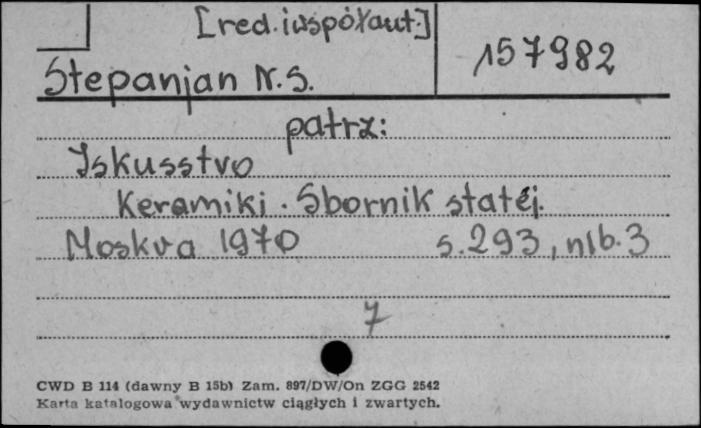 [red. i współaut.]
157982
Stepanjan N.S.
patrz:
Iskusstvo
Keramiki. Sbornik statéj.
Moskva 1970 s. 293, nlb. 3
7
CWD B 114 (dawny B 15b) Zam. 897/DW/On ZGG 2542
Karta katalogowa wydawnictw ciągłych i zwartych.